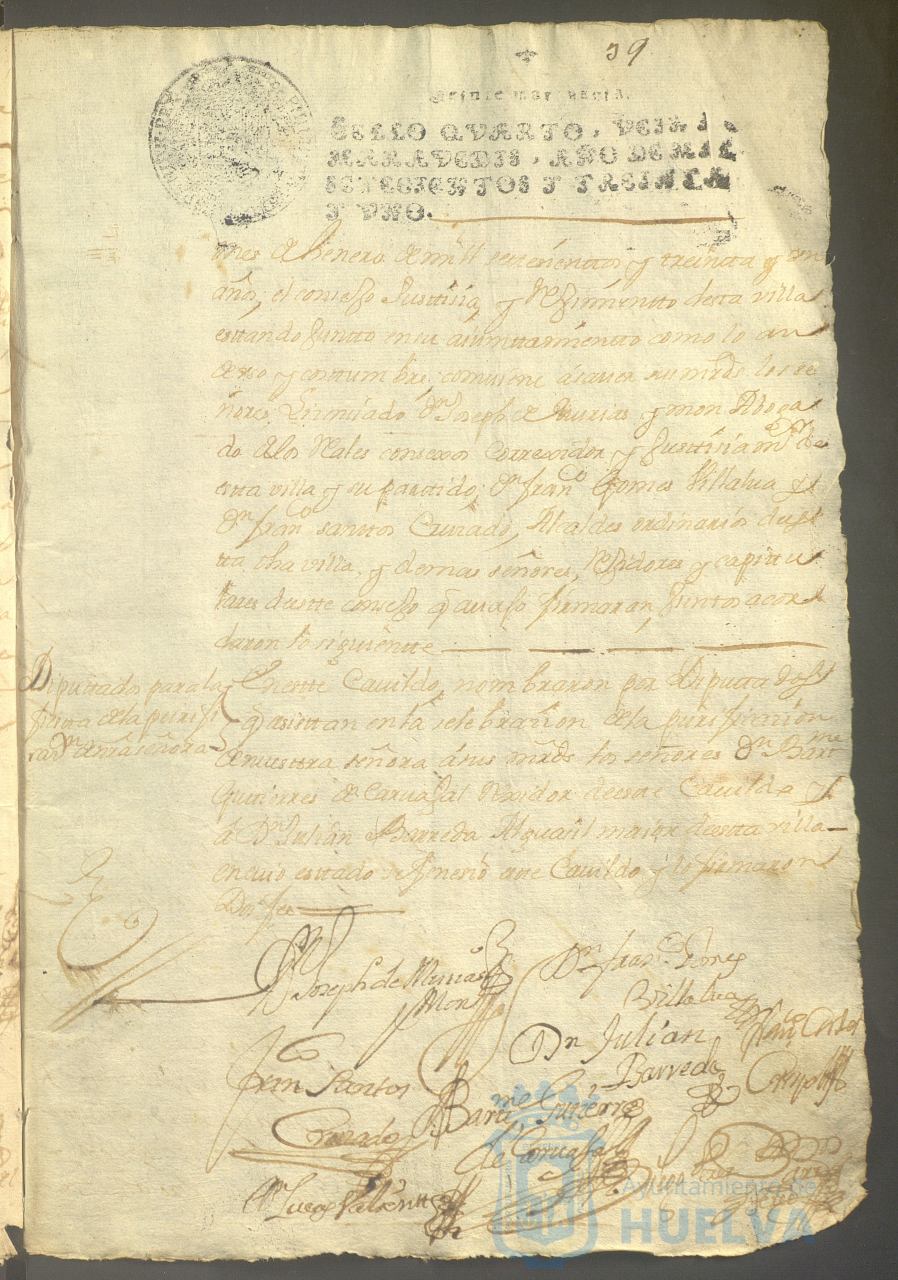 39
Veinte maravedis.
SELLO QVARTO, VEINTE
MARAVEDIS, AÑO DE MIL
SETECIENTOS Y TREINTA
Y VNO.
mes de henero de mill setesientos y treinta y un
años, el consejo Justisia, y Reximiento desta villa
estando junto en su aiuntamiento como lo an
de uso y costumbre, combiene á saver sus mrds. los se
ñores Lisensiado Dn. Joseph de Murias y mon Aboga
do de los Reales consexos Correxidor y Justisia mor. de
esta villa y su partido; Dn. franco. Gomes Villalua y
Dn. franco. santtos Cruzado, Alcaldes ordinarios desta
dha villa y demas señores, Rexidores y capitu
lares deste consejo q avajo firmaran, Juntos acor
daron lo siguiente
Diputtados para la
fiesta de la purifi
caon. de nra señora
En este Cavildo, nombraron por Diputados
q asistan en la selebrazion de la purificazion
de nuestra señora á sus mrds los señores Dn. Barme
Gutierres de Carvajal Rexidor deeste Cavildo y
á Dn. Julian Barreda Alguasil maior desta villa
en cuio estado se feneció este Cavildo y lo firmaron
Doi fee
Joseph de Murias
y Mon
Dn. franco. Gomes
Villalua
Dn Julian
Barreda
Fran Santos
Cruzado
Barme Gutierre
de Carvajal
Dn Lucas Valiente
Ayuntamiento de
HUELVA